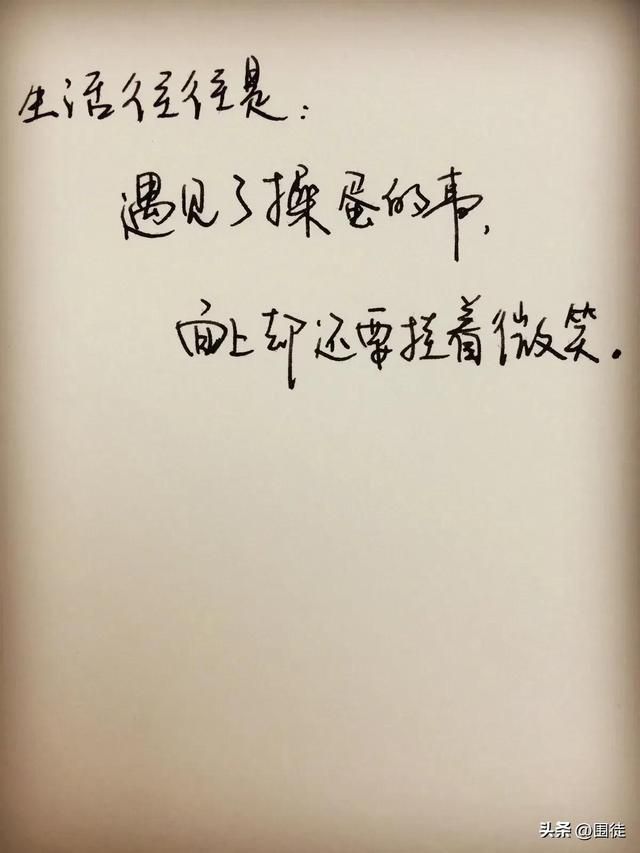 生活往往是：
遇见了操蛋的事，
面上却还要挂着微笑。
头条 @围徒